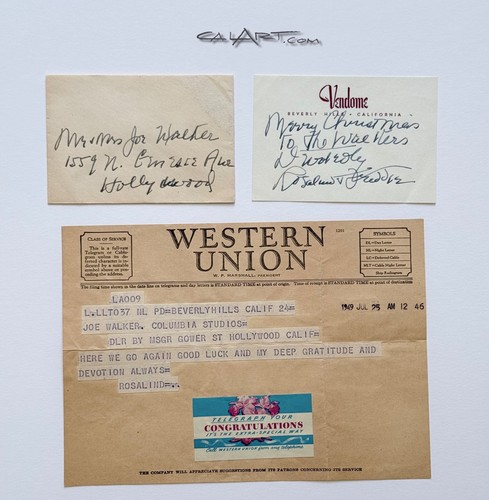 CALART.com
Mr & Mrs Joe Walker
1559 N. Ave
Hollywood
Vendome
BEVERLY HILLS • CALIFORNIA
Merry Christmas
To The Walkers
Devotedly
Rosalind & Freddie
CLASS OF SERVICE
This is a full-rate
Telegram or Cable-
gram unless its de-
ferred character is in-
dicated by a suitable
symbol above or pre-
ceding the address.
WESTERN
UNION
1201
R. B. MARSHALL, PRESIDENT
SYMBOLS
DL=Day Letter
NL=Night Letter
LC=Deferred Cable
NLT=Cable Night Letter
Ship Radiogram
The filing time shown in the date line on telegrams and day letters is STANDARD TIME at point of origin. Time of receipt is STANDARD TIME at point of destination
LA009
L.LLT037 NL PD=BEVERLYHILLS CALIF 24=
1949 JUL 25 AM 12 46
JOE WALKER, COLUMBIA STUDIOS=
DLR BY MSGR GOWER ST HOLLYWOOD CALIF=
HERE WE GO AGAIN GOOD LUCK AND MY DEEP GRATITUDE AND
DEVOTION ALWAYS=
ROSALIND=
TELEGRAPH YOUR
CONGRATULATIONS
IT'S THE EXTRA-SPECIAL WAY
Call western union from any telephone
THE COMPANY WILL APPRECIATE SUGGESTIONS FROM ITS PATRONS CONCERNING ITS SERVICE